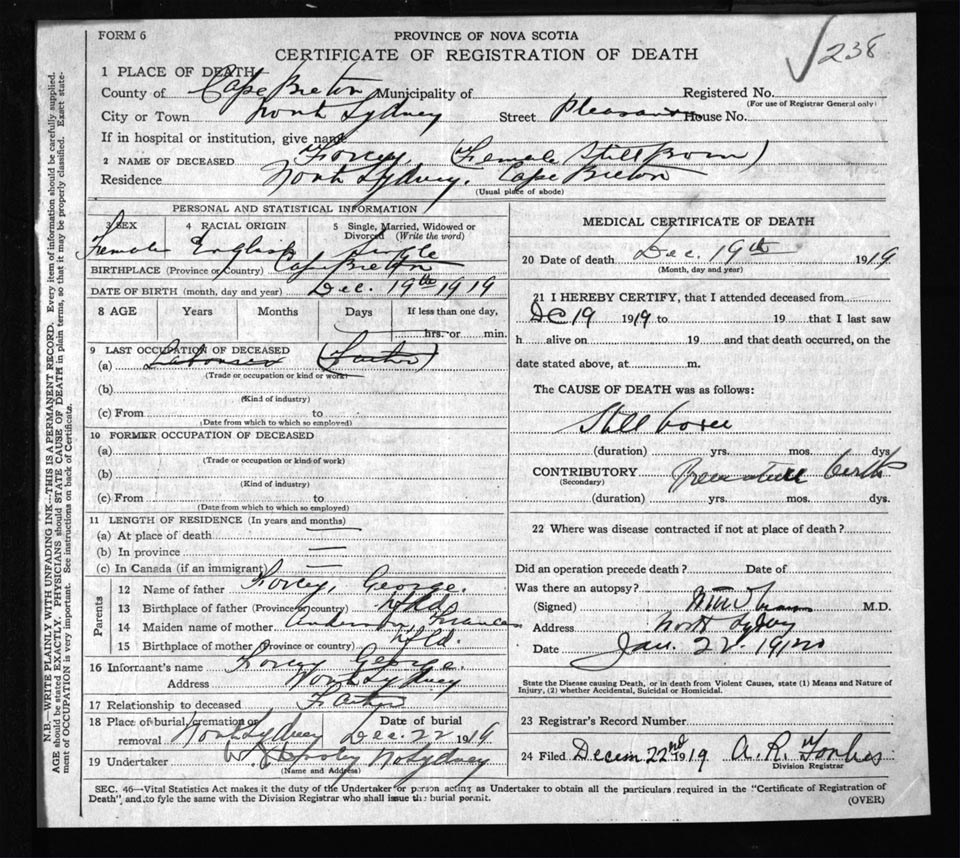 FORM 6
PROVINCE OF NOVA SCOTIA
CERTIFICATE OF REGISTRATION OF DEATH
238
1 PLACE OF DEATH
County of Cape Breton Municipality of Registered No.
(For use of Registrar General only)
City or Town North Sydney Street Pleasant House No.
If in hospital or institution, give name
2 NAME OF DECEASED (Female Still Born)
Residence North Sydney, Cape Breton
(Usual place of abode)
PERSONAL AND STATISTICAL INFORMATION
3 SEX 4 RACIAL ORIGIN 5 Single, Married, Widowed or Divorced (Write the word)
Female English Single
BIRTHPLACE (Province or Country) Cape Breton
DATE OF BIRTH (month, day and year) Dec. 19th 1919
8 AGE Years Months Days If less than one day,
hrs. or min.
9 LAST OCCUPATION OF DECEASED
(a) Laborer (Father)
(Trade or occupation or kind or work)
(b)
(Kind of industry)
(c) From to
(Date from which to which so employed)
10 FORMER OCCUPATION OF DECEASED
(a)
(Trade or occupation or kind of work)
(b)
(Kind of industry)
(c) From to
(Date from which to which so employed)
11 LENGTH OF RESIDENCE (In years and months)
(a) At place of death —
(b) In province —
(c) In Canada (if an immigrant) —
Parents
12 Name of father George
13 Birthplace of father (Province or country) Nfld
14 Maiden name of mother Anderson, Frances
15 Birthplace of mother (Province or country) Nfld.
16 Informant's name George
Address North Sydney
17 Relationship to deceased Father
18 Place of burial, cremation or removal North Sydney Date of burial Dec. 22 1919
19 Undertaker No Sydney
(Name and Address)
MEDICAL CERTIFICATE OF DEATH
20 Date of death Dec. 19th 1919
(Month, day and year)
21 I HEREBY CERTIFY, that I attended deceased from
Dc 19 1919 to 19 that I last saw
h alive on 19 and that death occurred, on the
date stated above, at m.
The CAUSE OF DEATH was as follows:
Still born
(duration) yrs. mos. dys
CONTRIBUTORY Premature birth
(Secondary)
(duration) yrs. mos. dys.
22 Where was disease contracted if not at place of death?
Did an operation precede death? Date of
Was there an autopsy?
(Signed) M.D.
Address North Sydney
Date Jan. 22 1920
State the Disease causing Death, or in death from Violent Causes, state (1) Means and Nature of
Injury, (2) whether Accidental, Suicidal or Homicidal.
23 Registrar's Record Number
24 Filed Decem 22nd 1919 A. R. Forbes
Division Registrar
SEC. 46—Vital Statistics Act makes it the duty of the Undertaker or person acting as Undertaker to obtain all the particulars required in the "Certificate of Registration of
Death", and to fyle the same with the Division Registrar who shall issue the burial permit.
(OVER)
N.B.—WRITE PLAINLY WITH UNFADING INK—THIS IS A PERMANENT RECORD. Every item of information should be carefully supplied.
AGE should be stated EXACTLY. PHYSICIANS should STATE CAUSE OF DEATH in plain terms, so that it may be properly classified. Exact state-
ment of OCCUPATION is very important. See instructions on back of Certificate.